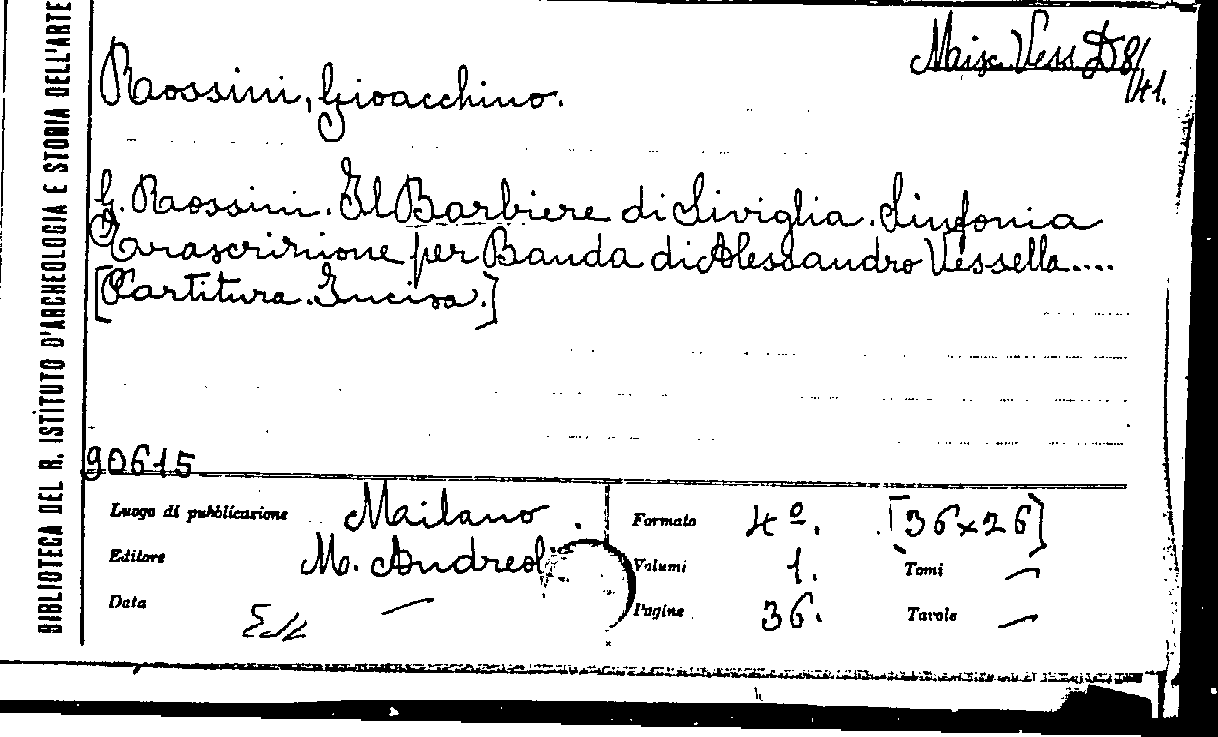 BIBLIOTECA DEL R. ISTITUTO D'ARCHEOLOGIA E STORIA DELL'ARTE
Misc. Vess. D 8/41.
Rossini, Gioacchino.
G. Rossini. Il Barbiere di Siviglia. Sinfonia
Trascrizione per Banda di Alessandro Vessella....
[Partitura. Incisa.]
90615
Luogo di pubblicazione Milano.
Editore M. Andreol
Data —
Formato 4º. [36x26]
Volumi 1. Tomi —
Pagine 36. Tavole —